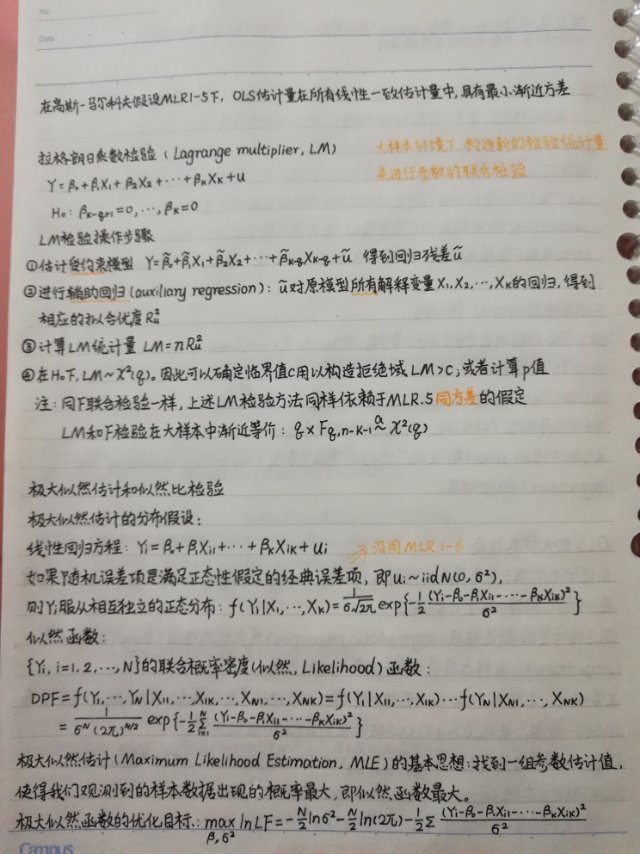 No.
Date
在高斯-马尔科夫假设MLR1-5下，OLS估计量在所有线性一致估计量中，具有最小渐近方差
拉格朗日乘数检验（Lagrange multiplier, LM）
大样本环境下，构造新的检验统计量
来进行参数的联合检验
Y=β₀+β₁X₁+β₂X₂+···+βₖXₖ+u
H₀：βₖ₋q₊₁=0,···,βₖ=0
LM检验操作步骤
①估计受约束模型 Y=β̃₀+β̃₁X₁+β̃₂X₂+···+β̃ₖ₋qXₖ₋q+ũ 得到回归残差ũ
②进行辅助回归(auxiliary regression)：ũ对原模型所有解释变量X₁,X₂,···,Xₖ的回归,得到
相应的拟合优度Rᵤ²
③计算LM统计量 LM=nRᵤ²
④在H₀下,LM~χ²(q)。因此可以确定临界值c用以构造拒绝域 LM>c；或者计算p值
注：同F联合检验一样，上述LM检验方法同样依赖于MLR.5同方差的假定
LM和F检验在大样本中渐近等价：q×F_{q,n-K-1} ᵃ~ χ²(q)
极大似然估计和似然比检验
极大似然估计的分布假设：
线性回归方程：Yᵢ=β₀+β₁Xᵢ₁+···+βₖXᵢₖ+uᵢ ⇒沿用MLR.1-6
如果随机误差项是满足正态性假定的经典误差项，即uᵢ~iidN(0,σ²),
则Yᵢ服从相互独立的正态分布：f(Yᵢ|X₁,···,Xₖ)=1/(σ√2π) exp{-1/2 (Yᵢ-β₀-β₁Xᵢ₁-···-βₖXᵢₖ)²/σ²}
似然函数：
{Yᵢ,i=1,2,···,N}的联合概率密度(似然,Likelihood)函数：
DPF=f(Y₁,···,Y_N|X₁₁,···,X₁ₖ,···,X_N₁,···,X_NK)=f(Y₁|X₁₁,···,X₁ₖ)···f(Y_N|X_N₁,···,X_NK)
=1/(σᴺ(2π)^{N/2}) exp{-1/2 Σᵢ₌₁ᴺ (Yᵢ-β₀-β₁Xᵢ₁-···-βₖXᵢₖ)²/σ²}
极大似然估计(Maximum Likelihood Estimation, MLE)的基本思想：找到一组参数估计值，
使得我们观测到的样本数据出现的概率最大，即似然函数最大。
极大似然函数的优化目标：max_{β,σ²} lnLF=-N/2 lnσ²-N/2 ln(2π)-1/2 Σ (Yᵢ-β₀-β₁Xᵢ₁-···-βₖXᵢₖ)²/σ²
Campus